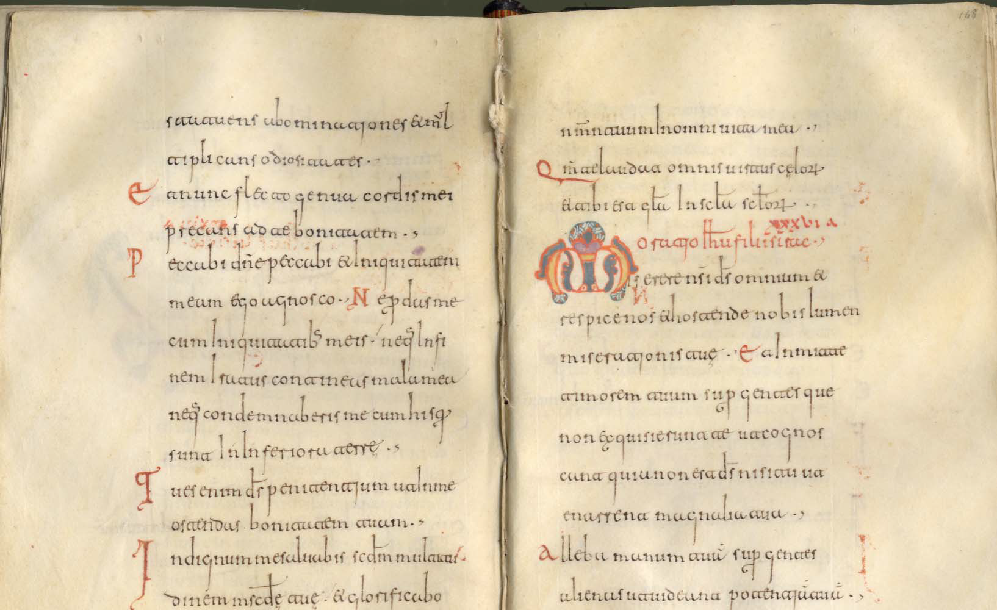 statuens abominationes & ml
tiplicans odiositates.
Et nunc flecto genua cordis mei
precans ad te bonitatem.
Peccabi dñe peccabi & Iniquitatem
meam ego agnosco. Ne ꝑdas me
cum Iniquitatibꝰ meis. neqꝫ In fi
nem Iratus contineas mala mea
neqꝫ condemnaberis me cum hisqꝫ
sunt In Inferiora terrę.
Tu es enim d̄s penitentium ut In me
ostendas bonitatem tuam.
Indignum me salvabis scd̄m multitu
dinem mscd̄e tuę. & glorificabo
168
nm̄n tuum In omni vita mea.
Qm̄ te laudat omnis uirtus celoꝝ
& tibi est gl̄a In scl̄a scl̄oꝝ.
xxxvi a
Oratio Ih̄u filii sirac.
Miserere nsi d̄s omnium &
respice nos & hostende nobis lumen
miserationis tuę. Et Inmitte
timorem tuum suꝑ gentes que
non exquisierunt te ut cognos
cant quia non est d̄s nisi tu ut
enarrent magnalia tua.
Alleba manum tuā suꝑ gentes
alienas ut uideant potentiā tuā.